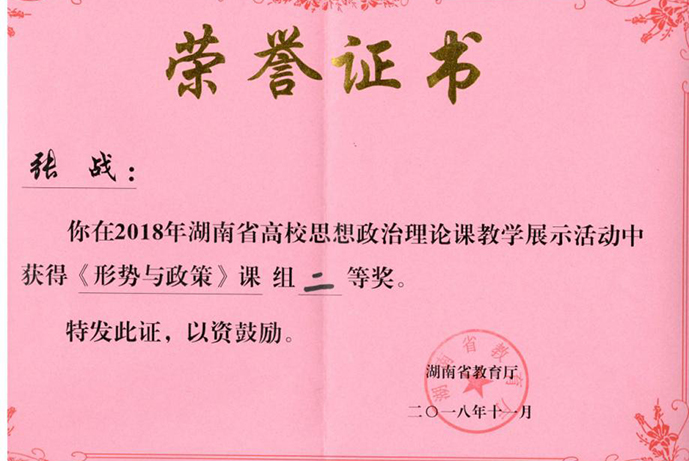 荣誉证书
张战：
你在2018年湖南省高校思想政治理论课教学展示活动中
获得《形势与政策》课 组 二 等奖。
特发此证，以资鼓励。
湖南省教育厅
湖南省教育厅
二〇一八年十一月